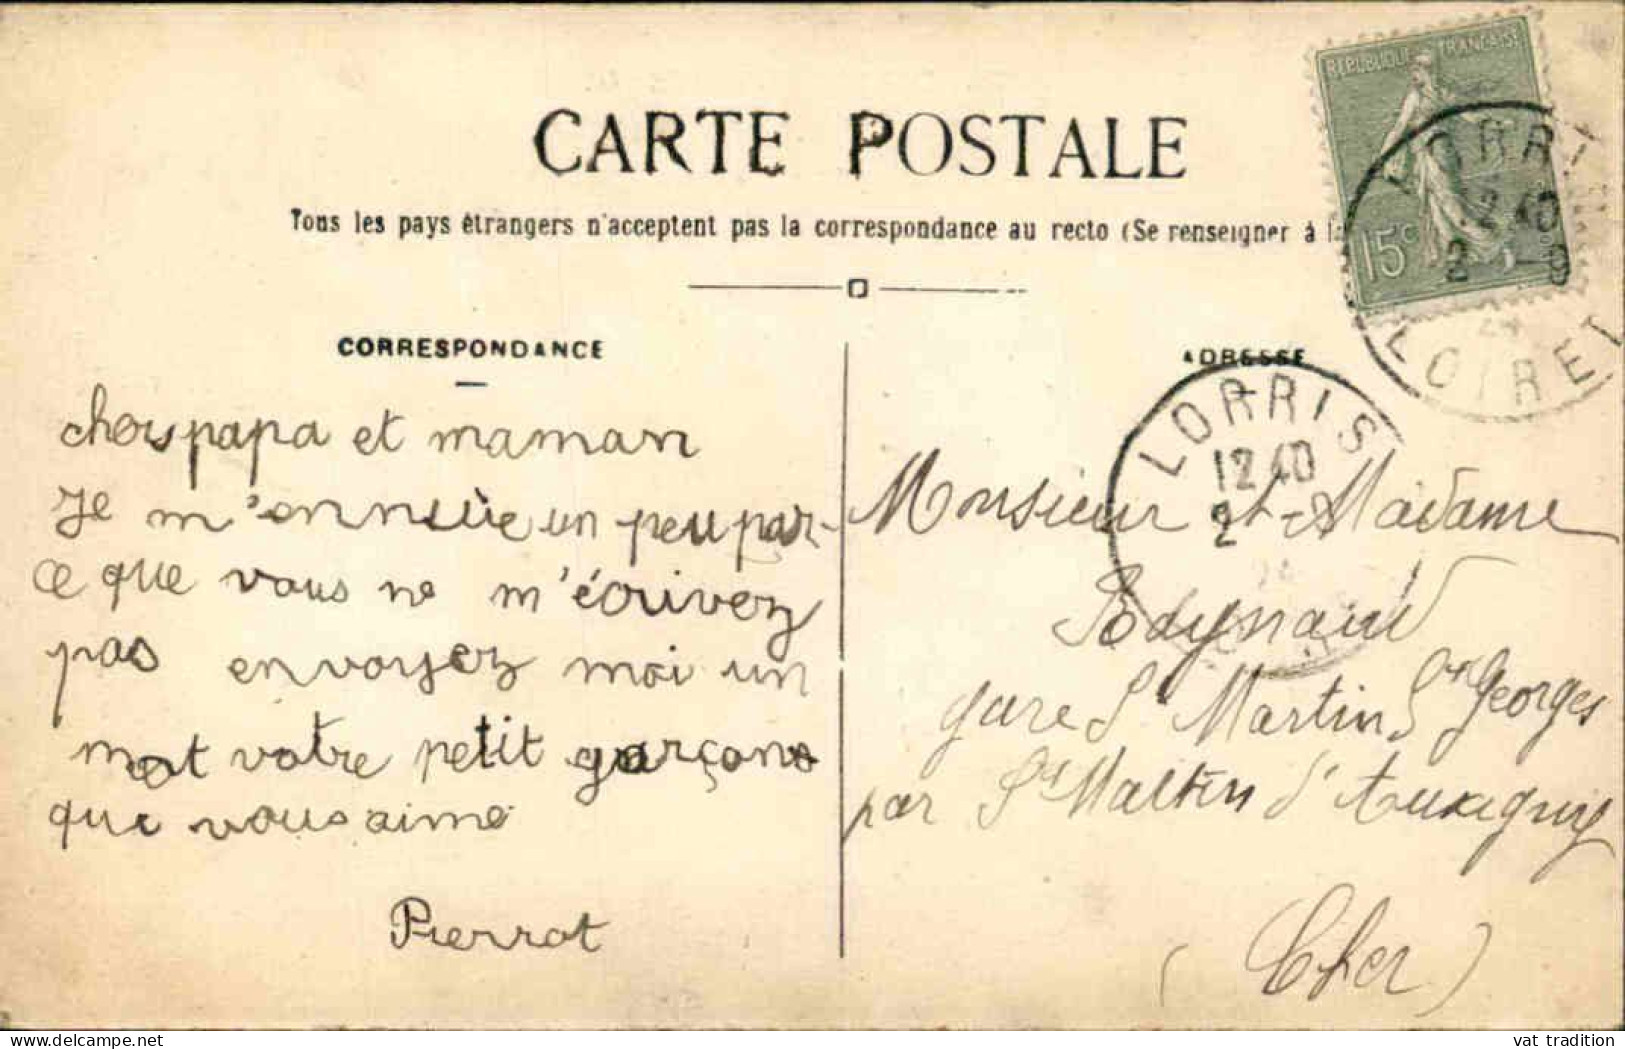 CARTE POSTALE
Tous les pays étrangers n'acceptent pas la correspondance au recto (Se renseigner à la
CORRESPONDANCE
chers papa et maman
Je m'ennuie un peu par-
ce que vous ne m'écrivez
pas envoyez moi un
mot votre petit garçons
que vous aime
Pierrot
ADRESSE
Monsieur et Madame
gare St Martin St Georges
par St Martin d'Auxigny
(Cher)
REPUBLIQUE FRANCAISE
15c
LORRIS
12 40
2 - 9
24
LOIRET
LORRIS
12 40
2
24
vat tradition